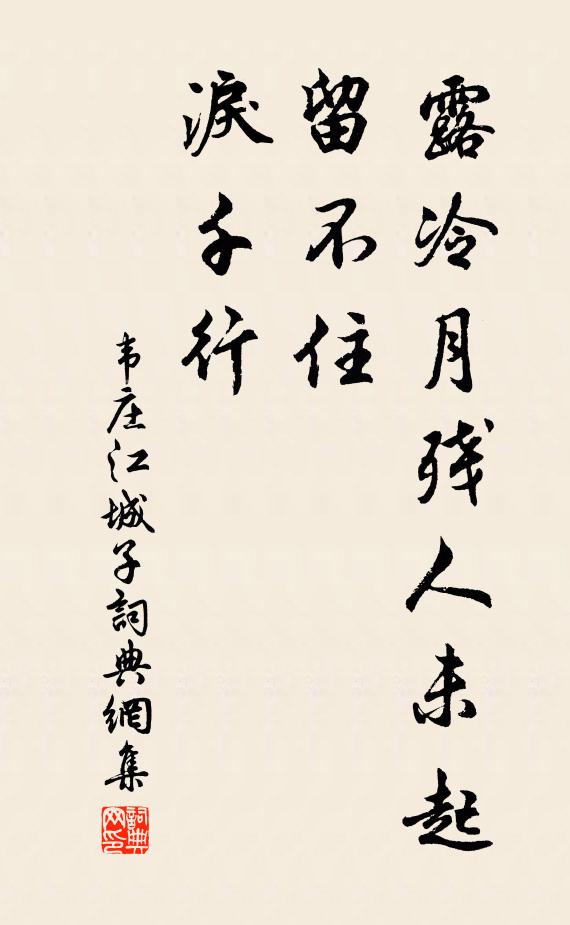 露冷月残人未起
留不住
淚千行
韦庄江城子詞典網集
詞典
网印